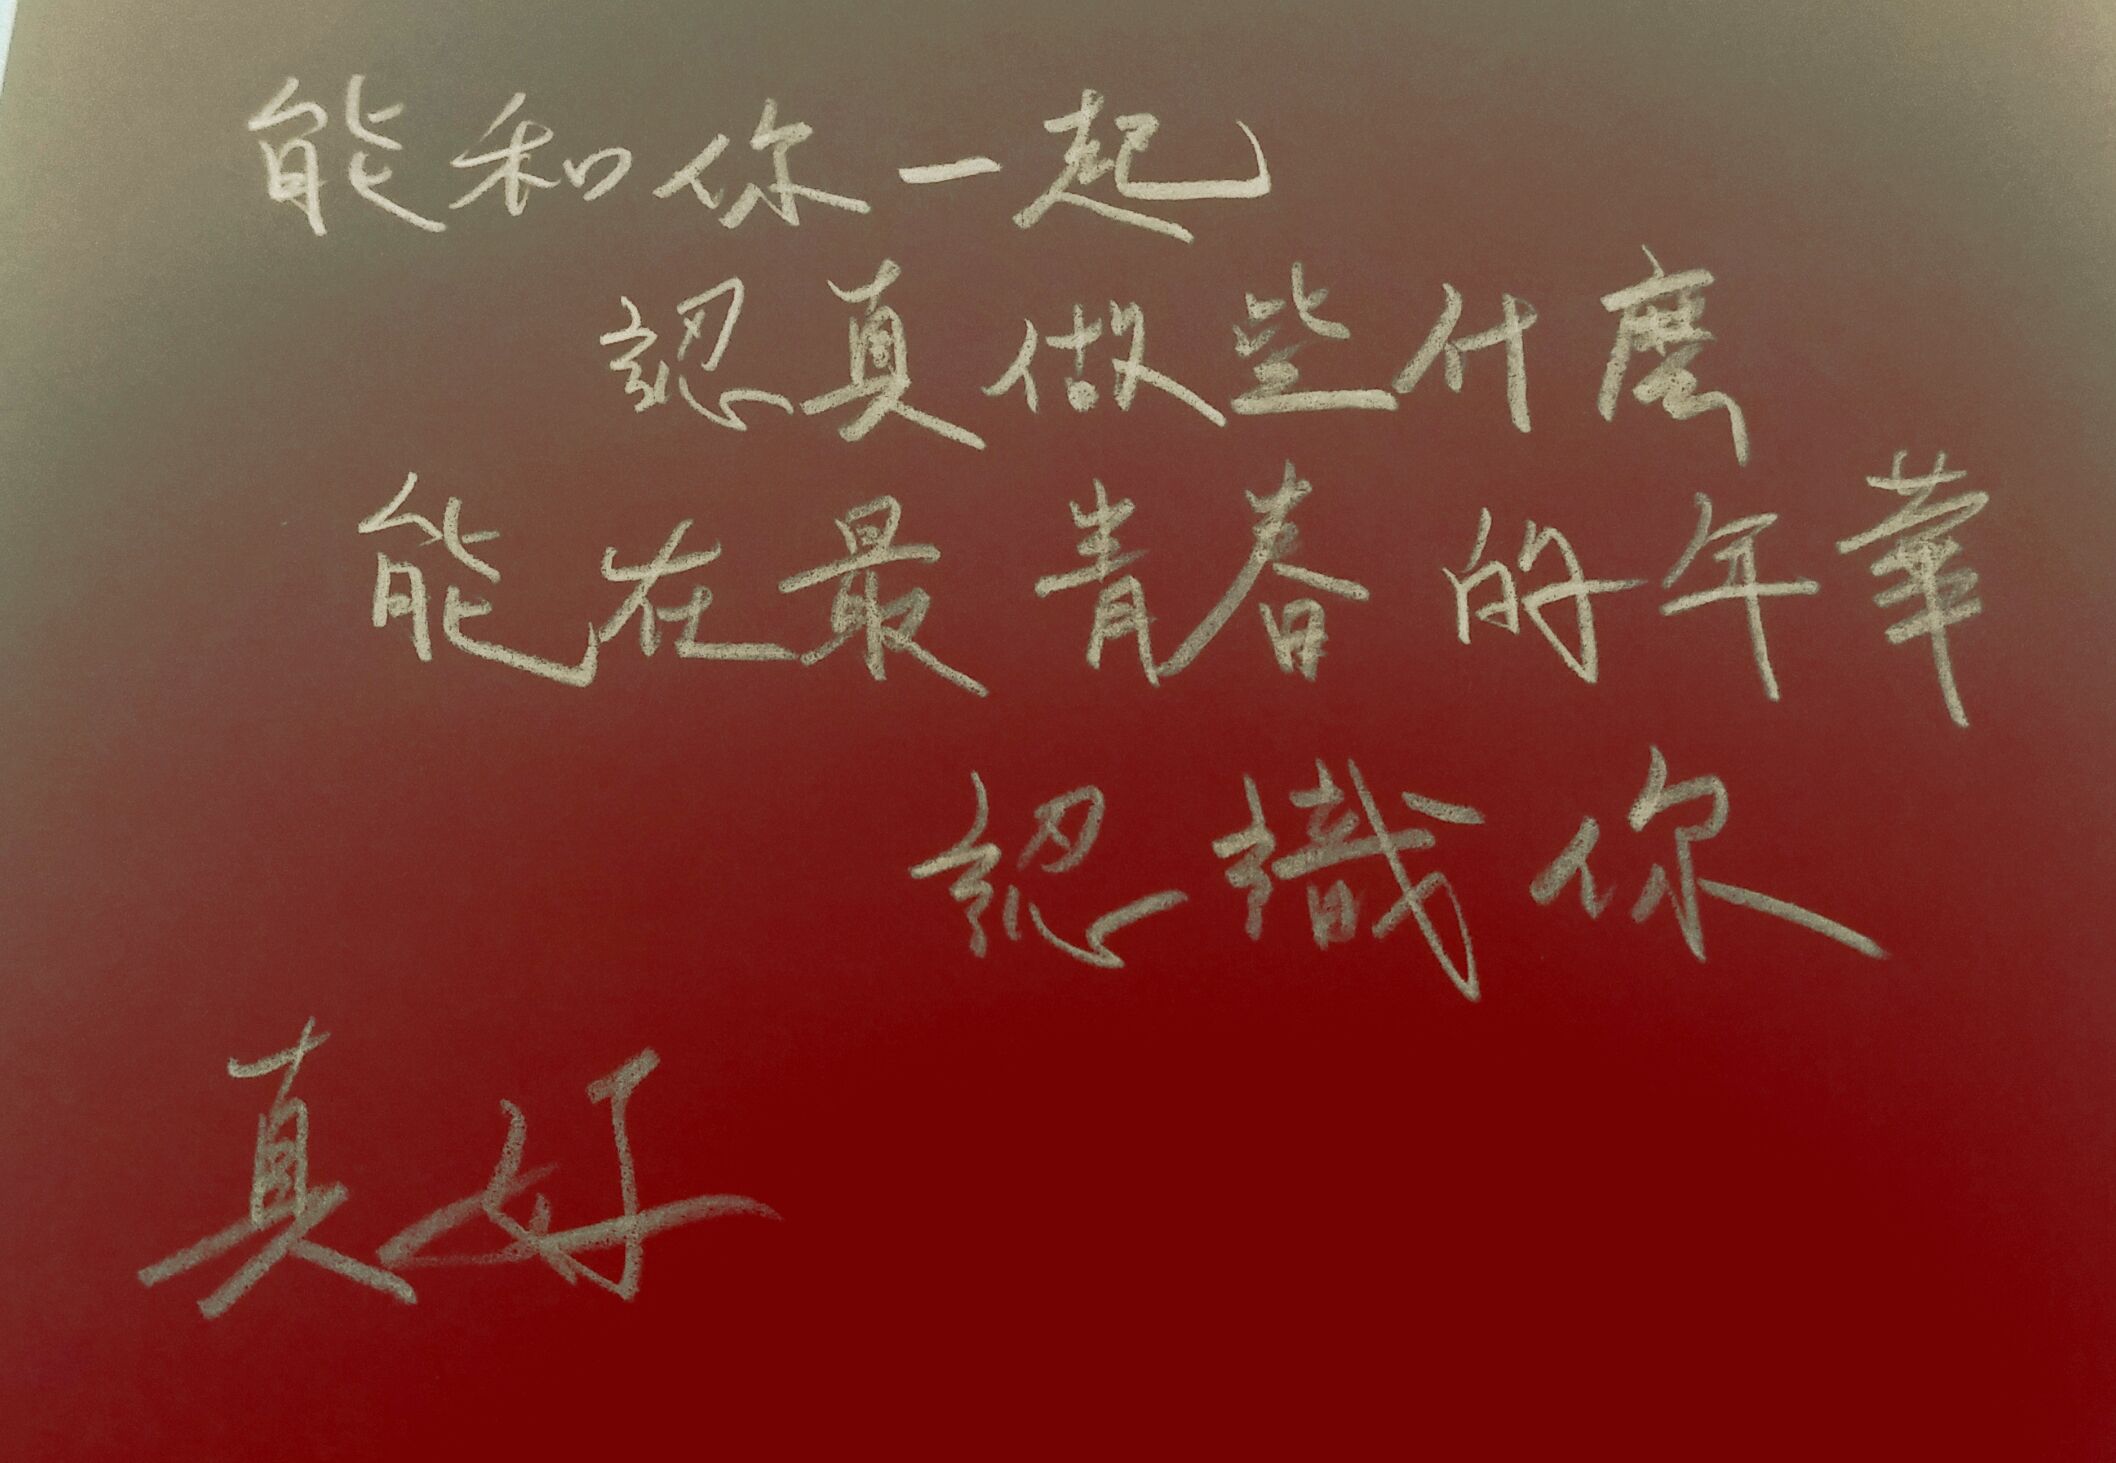 能和你一起
認真做些什麼
能在最青春的年華
認識你
真好